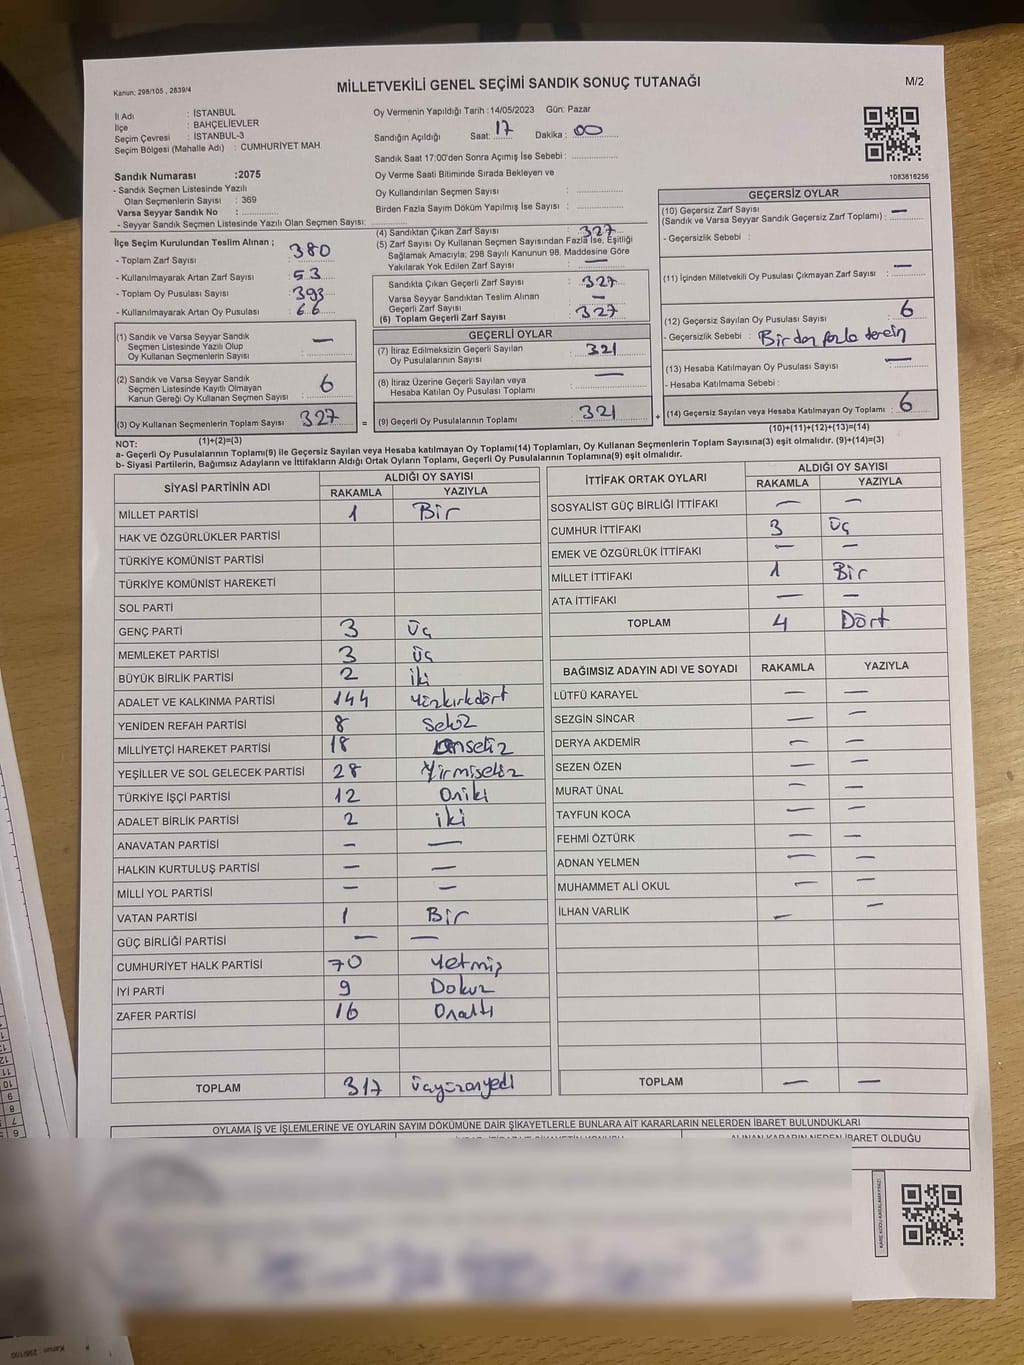 Kanun; 298/105 , 2839/4
MİLLETVEKİLİ GENEL SEÇİMİ SANDIK SONUÇ TUTANAĞI
M/2
İl Adı : İSTANBUL
İlçe : BAHÇELİEVLER
Seçim Çevresi : İSTANBUL-3
Seçim Bölgesi (Mahalle Adı) : CUMHURİYET MAH.
Sandık Numarası :2075
- Sandık Seçmen Listesinde Yazılı
Olan Seçmenlerin Sayısı : 369
Varsa Seyyar Sandık No :
- Seyyar Sandık Seçmen Listesinde Yazılı Olan Seçmen Sayısı:
Oy Vermenin Yapıldığı Tarih :14/05/2023 Gün: Pazar
Sandığın Açıldığı Saat: 17 Dakika : 00
Sandık Saat 17:00'den Sonra Açımış İse Sebebi :
Oy Verme Saati Bitiminde Sırada Bekleyen ve
Oy Kullandırılan Seçmen Sayısı :
Birden Fazla Sayım Döküm Yapılmış İse Sayısı :
1083616256
İlçe Seçim Kurulundan Teslim Alınan ;
- Toplam Zarf Sayısı : 380
- Kullanılmayarak Artan Zarf Sayısı : 53
- Toplam Oy Pusulası Sayısı : 393
- Kullanılmayarak Artan Oy Pusulası : 66
(1) Sandık ve Varsa Seyyar Sandık
Seçmen Listesinde Yazılı Olup
Oy Kullanan Seçmenlerin Sayısı : —
(2) Sandık ve Varsa Seyyar Sandık
Seçmen Listesinde Kayıtlı Olmayan
Kanun Gereği Oy Kullanan Seçmen Sayısı : 6
(3) Oy Kullanan Seçmenlerin Toplam Sayısı : 327
(1)+(2)=(3)
(4) Sandıktan Çıkan Zarf Sayısı : 327
(5) Zarf Sayısı Oy Kullanan Seçmen Sayısından Fazla İse, Eşitliği
Sağlamak Amacıyla; 298 Sayılı Kanunun 98. Maddesine Göre
Yakılarak Yok Edilen Zarf Sayısı : —
Sandıkta Çıkan Geçerli Zarf Sayısı : 327
Varsa Seyyar Sandıktan Teslim Alınan
Geçerli Zarf Sayısı : —
(6) Toplam Geçerli Zarf Sayısı : 327
GEÇERLİ OYLAR
(7) İtiraz Edilmeksizin Geçerli Sayılan
Oy Pusulalarının Sayısı : 321
(8) İtiraz Üzerine Geçerli Sayılan veya
Hesaba Katılan Oy Pusulası Toplamı : —
(9) Geçerli Oy Pusulalarının Toplamı : 321
GEÇERSİZ OYLAR
(10) Geçersiz Zarf Sayısı
(Sandık ve Varsa Seyyar Sandık Geçersiz Zarf Toplamı) : —
- Geçersizlik Sebebi :
(11) İçinden Milletvekili Oy Pusulası Çıkmayan Zarf Sayısı : —
(12) Geçersiz Sayılan Oy Pusulası Sayısı : 6
- Geçersizlik Sebebi : Birden fazla
(13) Hesaba Katılmayan Oy Pusulası Sayısı : —
- Hesaba Katılmama Sebebi :
(14) Geçersiz Sayılan veya Hesaba Katılmayan Oy Toplamı : 6
(10)+(11)+(12)+(13)=(14)
NOT:
a- Geçerli Oy Pusulalarının Toplamı(9) ile Geçersiz Sayılan veya Hesaba katılmayan Oy Toplamı(14) Toplamları, Oy Kullanan Seçmenlerin Toplam Sayısına(3) eşit olmalıdır. (9)+(14)=(3)
b- Siyasi Partilerin, Bağımsız Adayların ve İttifakların Aldığı Ortak Oyların Toplamı, Geçerli Oy Pusulalarının Toplamına(9) eşit olmalıdır.
SİYASİ PARTİNİN ADI ALDIĞI OY SAYISI
RAKAMLA YAZIYLA
MİLLET PARTİSİ 1 Bir
HAK VE ÖZGÜRLÜKLER PARTİSİ
TÜRKİYE KOMÜNİST PARTİSİ
TÜRKİYE KOMÜNİST HAREKETİ
SOL PARTİ
GENÇ PARTİ 3 üç
MEMLEKET PARTİSİ 3 üç
BÜYÜK BİRLİK PARTİSİ 2 iki
ADALET VE KALKINMA PARTİSİ 144 Yüzkırkdört
YENİDEN REFAH PARTİSİ 8 Sekiz
MİLLİYETÇİ HAREKET PARTİSİ 18 Onsekiz
YEŞİLLER VE SOL GELECEK PARTİSİ 28 Yirmisekiz
TÜRKİYE İŞÇİ PARTİSİ 12 Oniki
ADALET BİRLİK PARTİSİ 2 iki
ANAVATAN PARTİSİ — —
HALKIN KURTULUŞ PARTİSİ — —
MİLLİ YOL PARTİSİ — —
VATAN PARTİSİ 1 Bir
GÜÇ BİRLİĞİ PARTİSİ — —
CUMHURİYET HALK PARTİSİ 70 Yetmiş
İYİ PARTİ 9 Dokuz
ZAFER PARTİSİ 16 Onaltı
TOPLAM 317 Üçyüzonyedi
İTTİFAK ORTAK OYLARI ALDIĞI OY SAYISI
RAKAMLA YAZIYLA
SOSYALİST GÜÇ BİRLİĞİ İTTİFAKI — —
CUMHUR İTTİFAKI 3 üç
EMEK VE ÖZGÜRLÜK İTTİFAKI — —
MİLLET İTTİFAKI 1 Bir
ATA İTTİFAKI — —
TOPLAM 4 Dört
BAĞIMSIZ ADAYIN ADI VE SOYADI RAKAMLA YAZIYLA
LÜTFÜ KARAYEL — —
SEZGİN SİNCAR — —
DERYA AKDEMİR — —
SEZEN ÖZEN — —
MURAT ÜNAL — —
TAYFUN KOCA — —
FEHMİ ÖZTÜRK — —
ADNAN YELMEN — —
MUHAMMET ALİ OKUL — —
İLHAN VARLIK — —
TOPLAM — —
OYLAMA İŞ VE İŞLEMLERİNE VE OYLARIN SAYIM DÖKÜMÜNE DAİR ŞİKAYETLERLE BUNLARA AİT KARARLARIN NELERDEN İBARET BULUNDUKLARI
ALINAN KARARIN NEDEN İBARET OLDUĞU